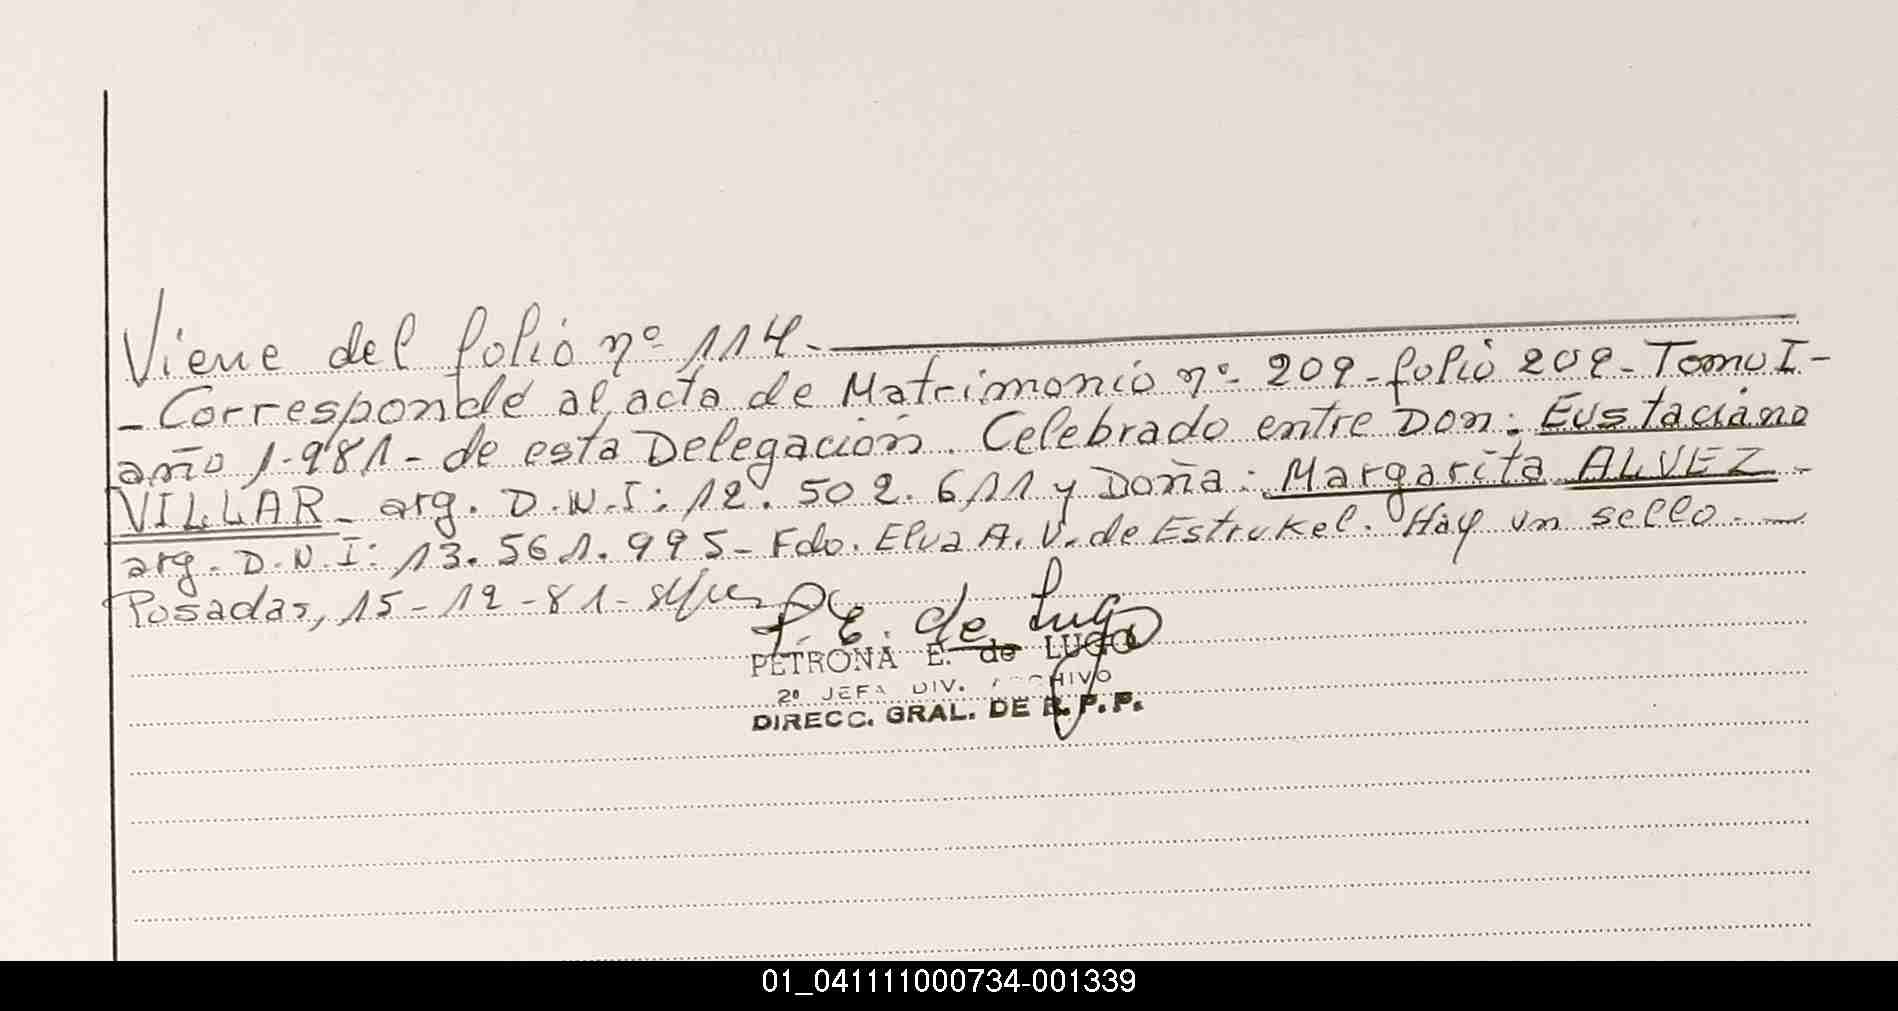 Viene del folio nº 114.
- Corresponde al acta de Matrimonio nº 209 - folio 209 - Tomo I -
año 1.981 - de esta Delegación. Celebrado entre Don: Eustaciano
VILLAR - arg. D.N.I: 12.502.611 y Doña: Margarita ALVEZ -
arg. D.N.I: 13.561.995 - Fdo. Elva A. V. de Estrukel. Hay un sello. -
Posadas, 15-12-81 -
P. E. de Lugo
PETRONA E. de LUGO
2ª JEFA DIV. ARCHIVO
DIRECC. GRAL. DE R. P. P.
01_041111000734-001339